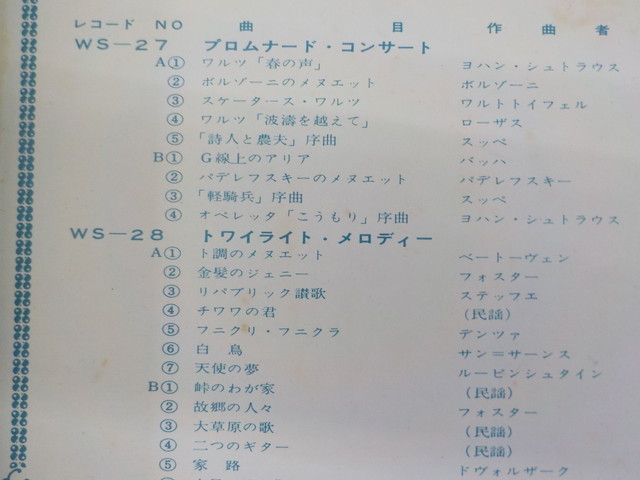 レコード NO 曲目 作曲者
WS-27 プロムナード・コンサート
A① ワルツ「春の声」 ヨハン・シュトラウス
② ボルゾーニのメヌエット ボルゾーニ
③ スケータース・ワルツ ワルトトイフェル
④ ワルツ「波濤を越えて」 ローザス
⑤ 「詩人と農夫」序曲 スッペ
B① G線上のアリア バッハ
② パデレフスキーのメヌエット パデレフスキー
③ 「軽騎兵」序曲 スッペ
④ オペレッタ「こうもり」序曲 ヨハン・シュトラウス
WS-28 トワイライト・メロディー
A① ト調のメヌエット ベートーヴェン
② 金髪のジェニー フォスター
③ リパブリック讃歌 ステッフエ
④ チワワの君 (民謡)
⑤ フニクリ・フニクラ デンツァ
⑥ 白鳥 サン=サーンス
⑦ 天使の夢 ルービンシュタイン
B① 峠のわが家 (民謡)
② 故郷の人々 フォスター
③ 大草原の歌 (民謡)
④ 二つのギター (民謡)
⑤ 家路 ドヴォルザーク